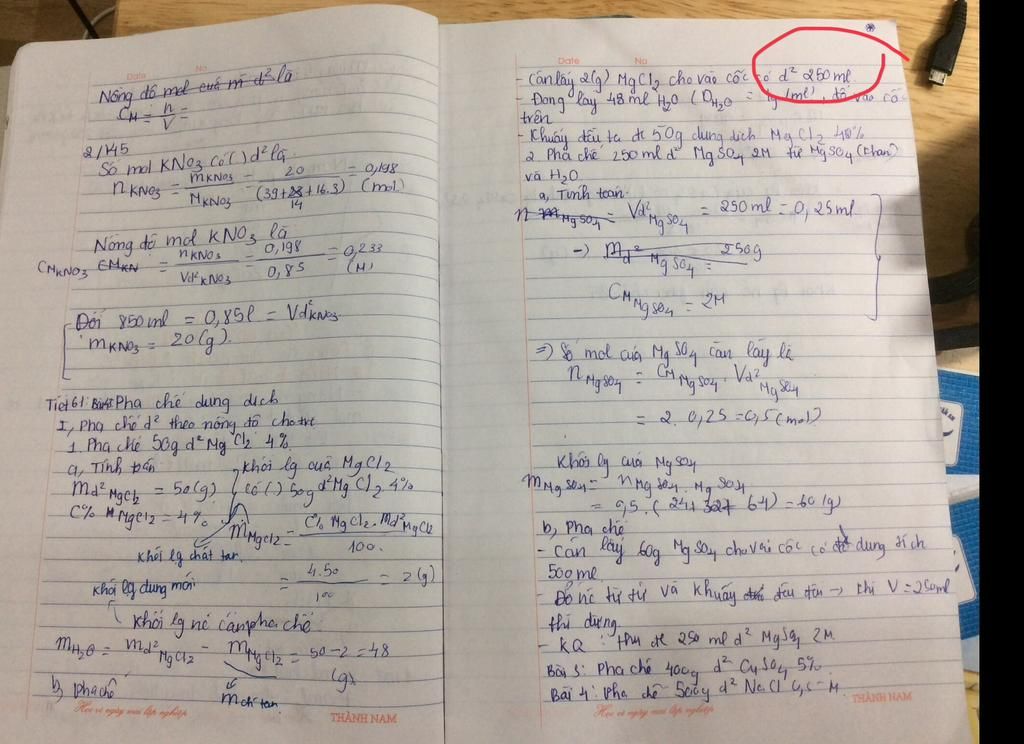 Date No
Nồng độ mol của m d² là
C_M = n/V =
2/145
Số mol KNO3 có ( ) d² là
n KNO3 = m KNO3 / M KNO3 = 20 / (39 + 14 + 16.3) = 0,198 (mol)
Nồng độ mol KNO3 là
CM KNO3 = n KNO3 / Vd² KNO3 = 0,198 / 0,85 = 0,233 (M)
Đổi 850ml = 0,85l = Vd² KNO3
m KNO3 = 20(g).
Tiết 61: Bài 43 Pha chế dung dịch
I, Pha chế d² theo nồng độ cho trc
1. Pha chế 50g d² MgCl2 4%
a, Tính toán
md² MgCl2 = 50(g)
C% MgCl2 = 4%
Khối lg của MgCl2
có ( ) 50g d² MgCl2 4%
m MgCl2 = C% MgCl2 . md² MgCl2 / 100
khối lg chất tan.
= 4.50 / 100 = 2(g)
khối lg dung môi
Khối lg nc cần pha chế
m H2O = md² MgCl2 - m MgCl2 = 50 - 2 = 48 (g)
m ch tan.
b, pha chế
Học vì ngày mai lập nghiệp THÀNH NAM
Date No
- Cần lấy 2(g) MgCl2 cho vào cốc có d² 250ml.
- Đong lấy 48ml H2O (D H2O = 1g/ml), đổ vào cốc
trên
- Khuấy đều ta đc 50g dung dịch MgCl2 4%
2. Pha chế 250ml d² MgSO4 2M từ MgSO4 (khan)
và H2O
a, Tính toán
Vd² MgSO4 = 250ml = 0,25ml
-) m d² MgSO4 = 250g
CM MgSO4 = 2M
=) Số mol của MgSO4 cần lấy là
n MgSO4 = CM MgSO4 . Vd² MgSO4
= 2. 0,25 = 0,5 (mol)
Khối lg của MgSO4
m MgSO4 = n MgSO4 . M MgSO4
= 0,5. (24 + 32 + 64) = 60(g)
b, Pha chế
- Cần lấy 60g MgSO4 cho vào cốc có dung tích
500ml.
- Đổ nc từ từ và khuấy đều đến → khi V = 250ml
thì dừng.
- KQ : thu đc 250ml d² MgSO4 2M
Bài 3: Pha chế 400g d² CuSO4 5%
Bài 4: Pha chế 500g d² NaCl
Học vì ngày mai lập nghiệp THÀNH NAM